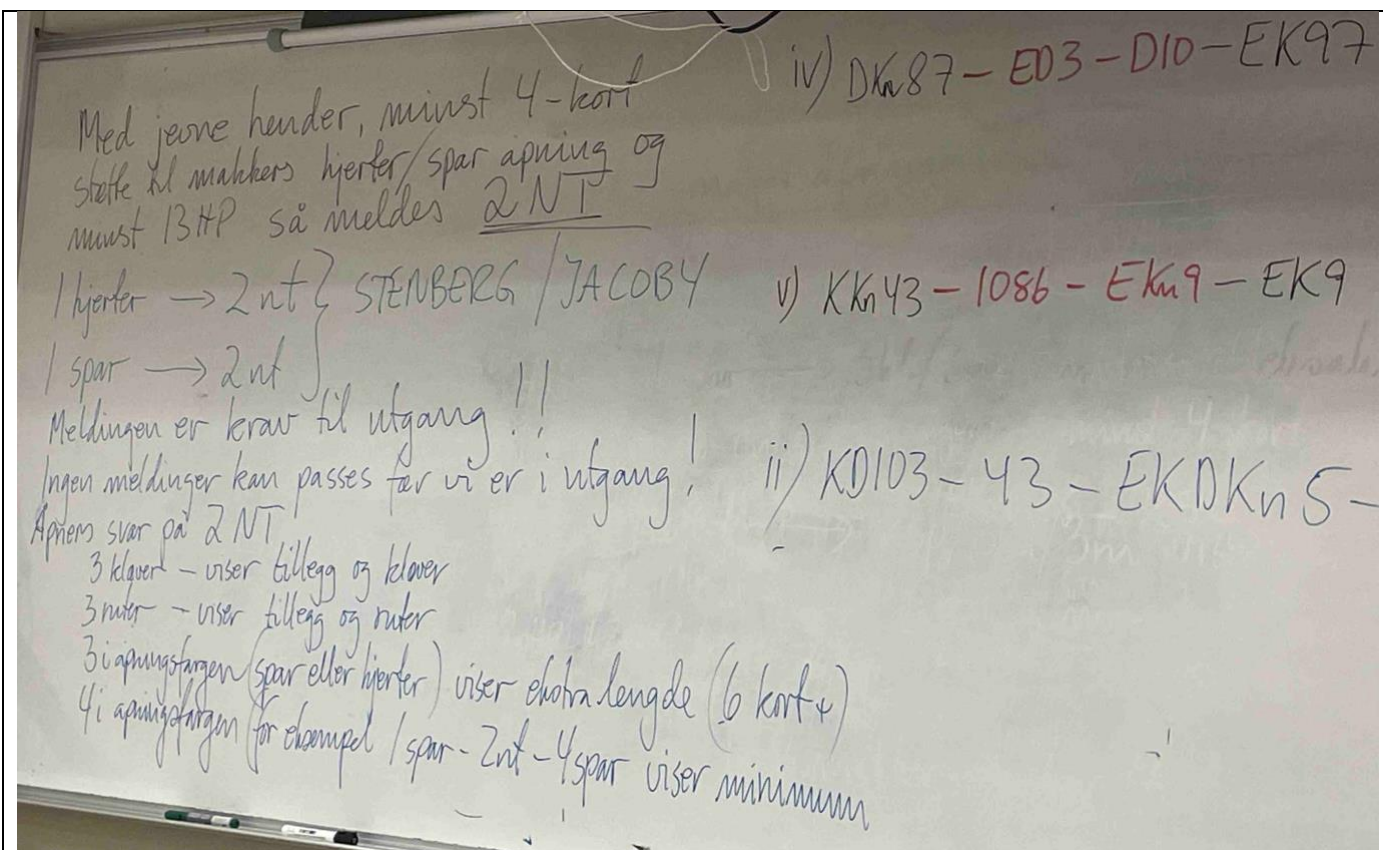 Med jevne hender, minst 4-kort
støtte til makkers hjerter/spar åpning og
minst 13HP så meldes 2NT
1 hjerter → 2nt } STENBERG / JACOBY
1 spar → 2nt
Meldingen er krav til utgang!!
Ingen meldinger kan passes før vi er i utgang!
Åpners svar på 2NT
3 kløver - viser tillegg og kløver
3 ruter - viser tillegg og ruter
3 i åpningsfargen (spar eller hjerter) viser ekstra lengde (6 kort+)
4 i åpningsfargen (for eksempel 1 spar - 2nt - 4 spar viser minimum
iv) DKn87 - ED3 - D10 - EK97
v) KKn43 - 1086 - EKn9 - EK9
ii) KD103 - 43 - EKDKn5 -